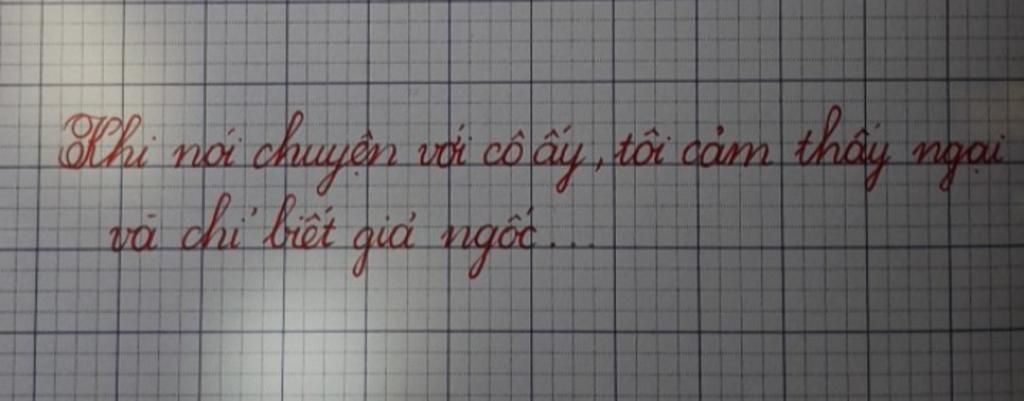 Khi nói chuyện với cô ấy, tôi cảm thấy ngại
và chỉ biết giả ngốc...